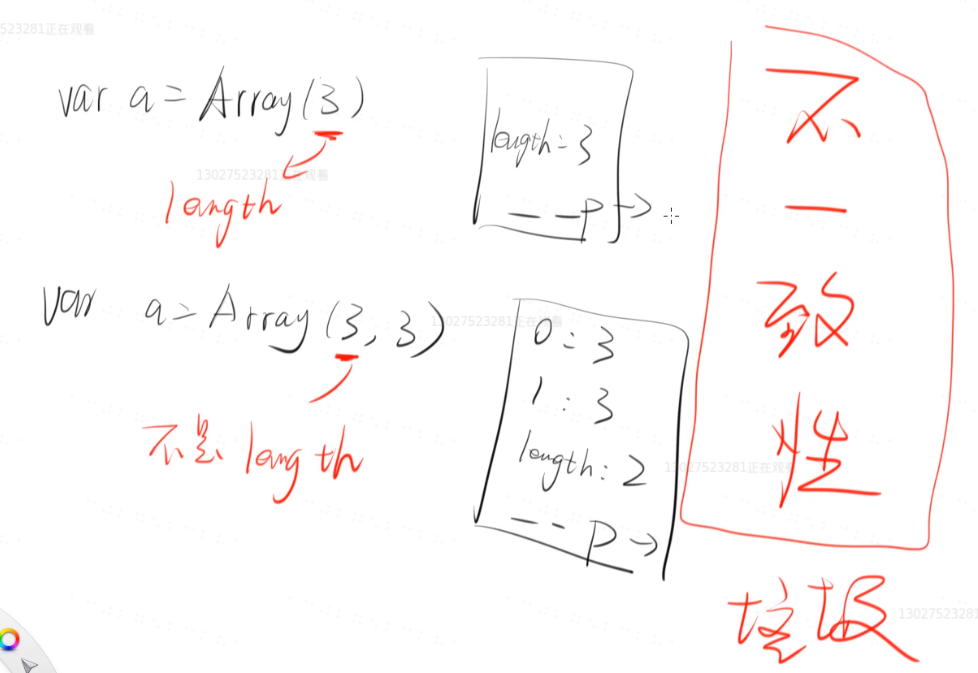 523281正在观看
var a = Array(3)
length
13027523281正在观看
length: 3
__p→
var a = Array(3, 3)
不是 length
13027523281正在观看
0: 3
1: 3
length: 2
__p→
13027523281正在观看
不
一
致
性
垃圾
13027523281